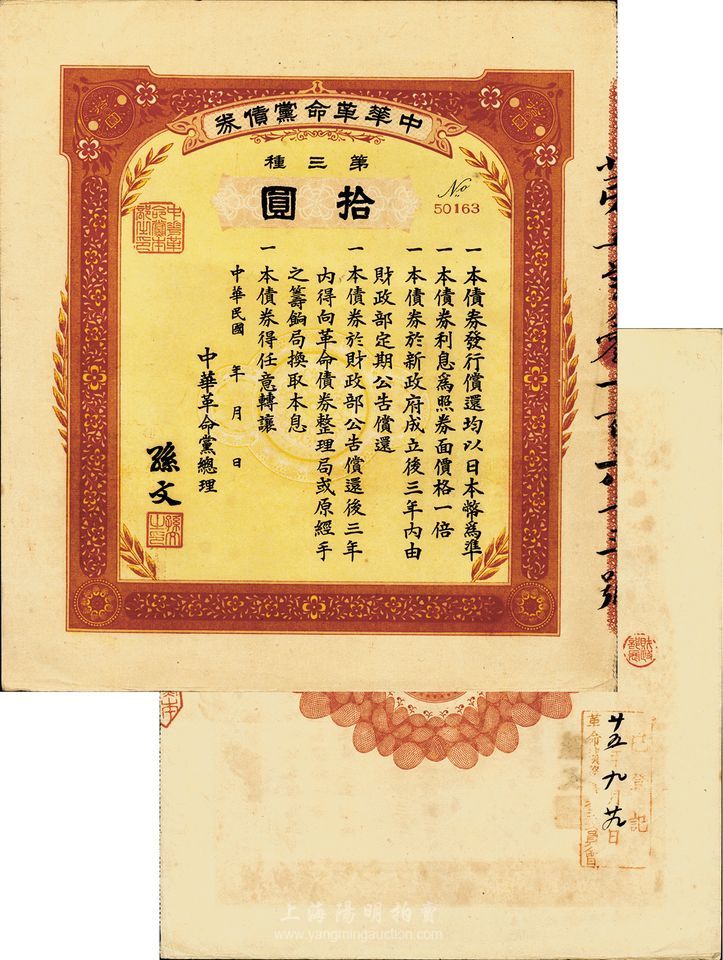 中華革命黨債券
拾圓
拾圓
第三種
拾圓
No
50163
一本債券發行償還均以日本幣爲準
一本債券利息爲照券面價格一倍
一本債券於新政府成立後三年內由
財政部定期公告償還
一本債券於財政部公告償還後三年
內得向革命債券整理局或原經手
之籌餉局換取本息
一本債券得任意轉讓
中華民國 年 月 日
中華革命黨總理
孫文
孫文之印
中華革命黨本部之印
已登記
廿五年九月廿九日
上海陽明拍賣
www.yangmingauction.com